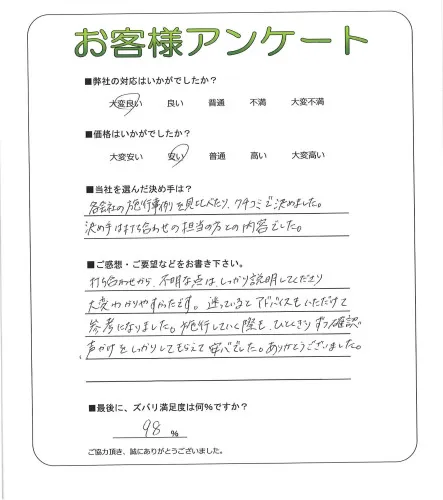 お客様アンケート
■弊社の対応はいかがでしたか？
大変良い 良い 普通 不満 大変不満
■価格はいかがでしたか？
大変安い 安い 普通 高い 大変高い
■当社を選んだ決め手は？
各会社の施行事例を見比べたり、クチコミで決めました。
決め手は打ち合わせの担当の方との内容でした。
■ご感想・ご要望などをお書き下さい。
打ち合わせから、不明な点はしっかり説明してくださり
大変わかりやすかったです。迷っているとアドバイスもいただけて
参考になりました。施行していく際も、ひとつきりずつ確認、
声かけをしっかりしてもらえて安心でした。ありがとうございました。
■最後に、ズバリ満足度は何％ですか？
98 ％
ご協力頂き、誠にありがとうございました。